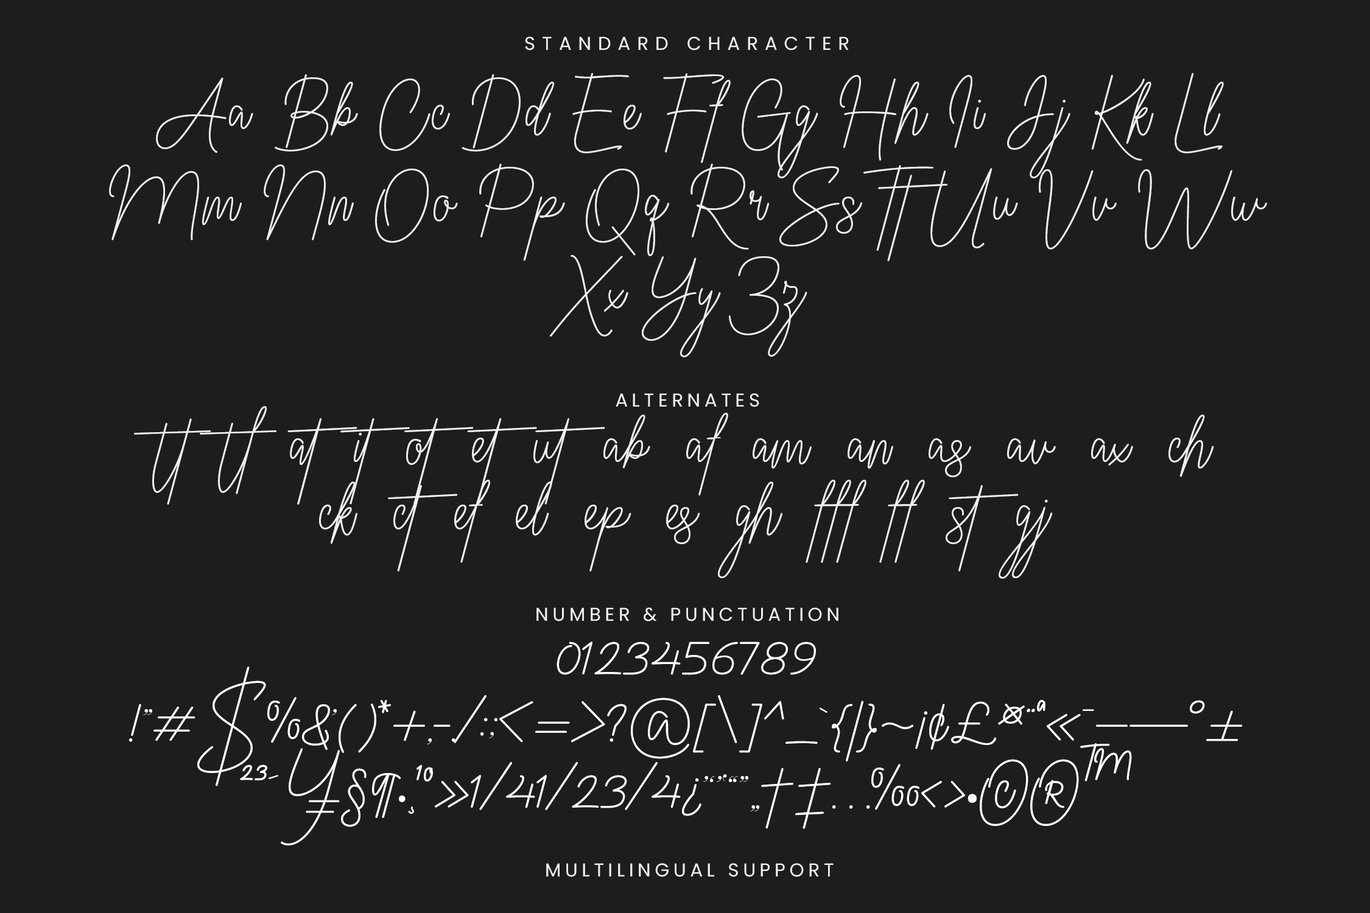 STANDARD CHARACTER
Aa Bb Cc Dd Ee Ff Gg Hh Ii Jj Kk Ll
Mm Nn Oo Pp Qq Rr Ss Tt Uu Vv Ww
Xx Yy Zz
ALTERNATES
tt tl at it ot et ut ab af am an as av ax ch
ck ct ef el ep es gh fff ff st gj
NUMBER & PUNCTUATION
0123456789
!"#$%&'()*+,-./:;<=>?@[\]^_`{|}~¡¢£¤¨ª«¯–—°±
²³´¥§¶·¸¹º»1/41/23/4¿‘’‚“”„†‡…‰‹›•©®™
MULTILINGUAL SUPPORT